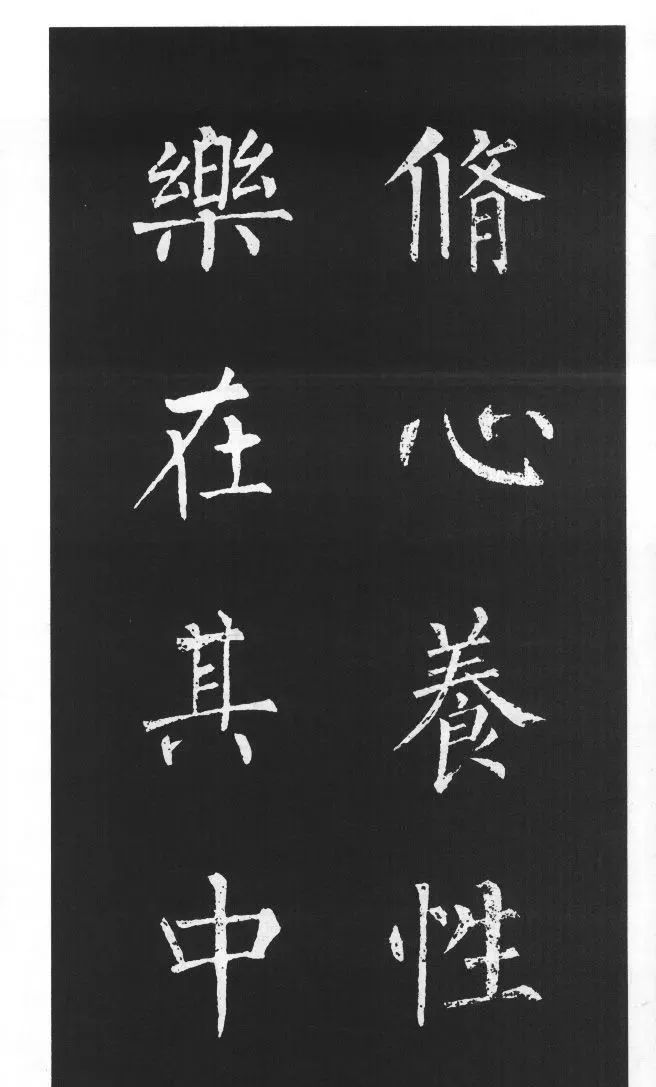 脩心養性
樂在其中